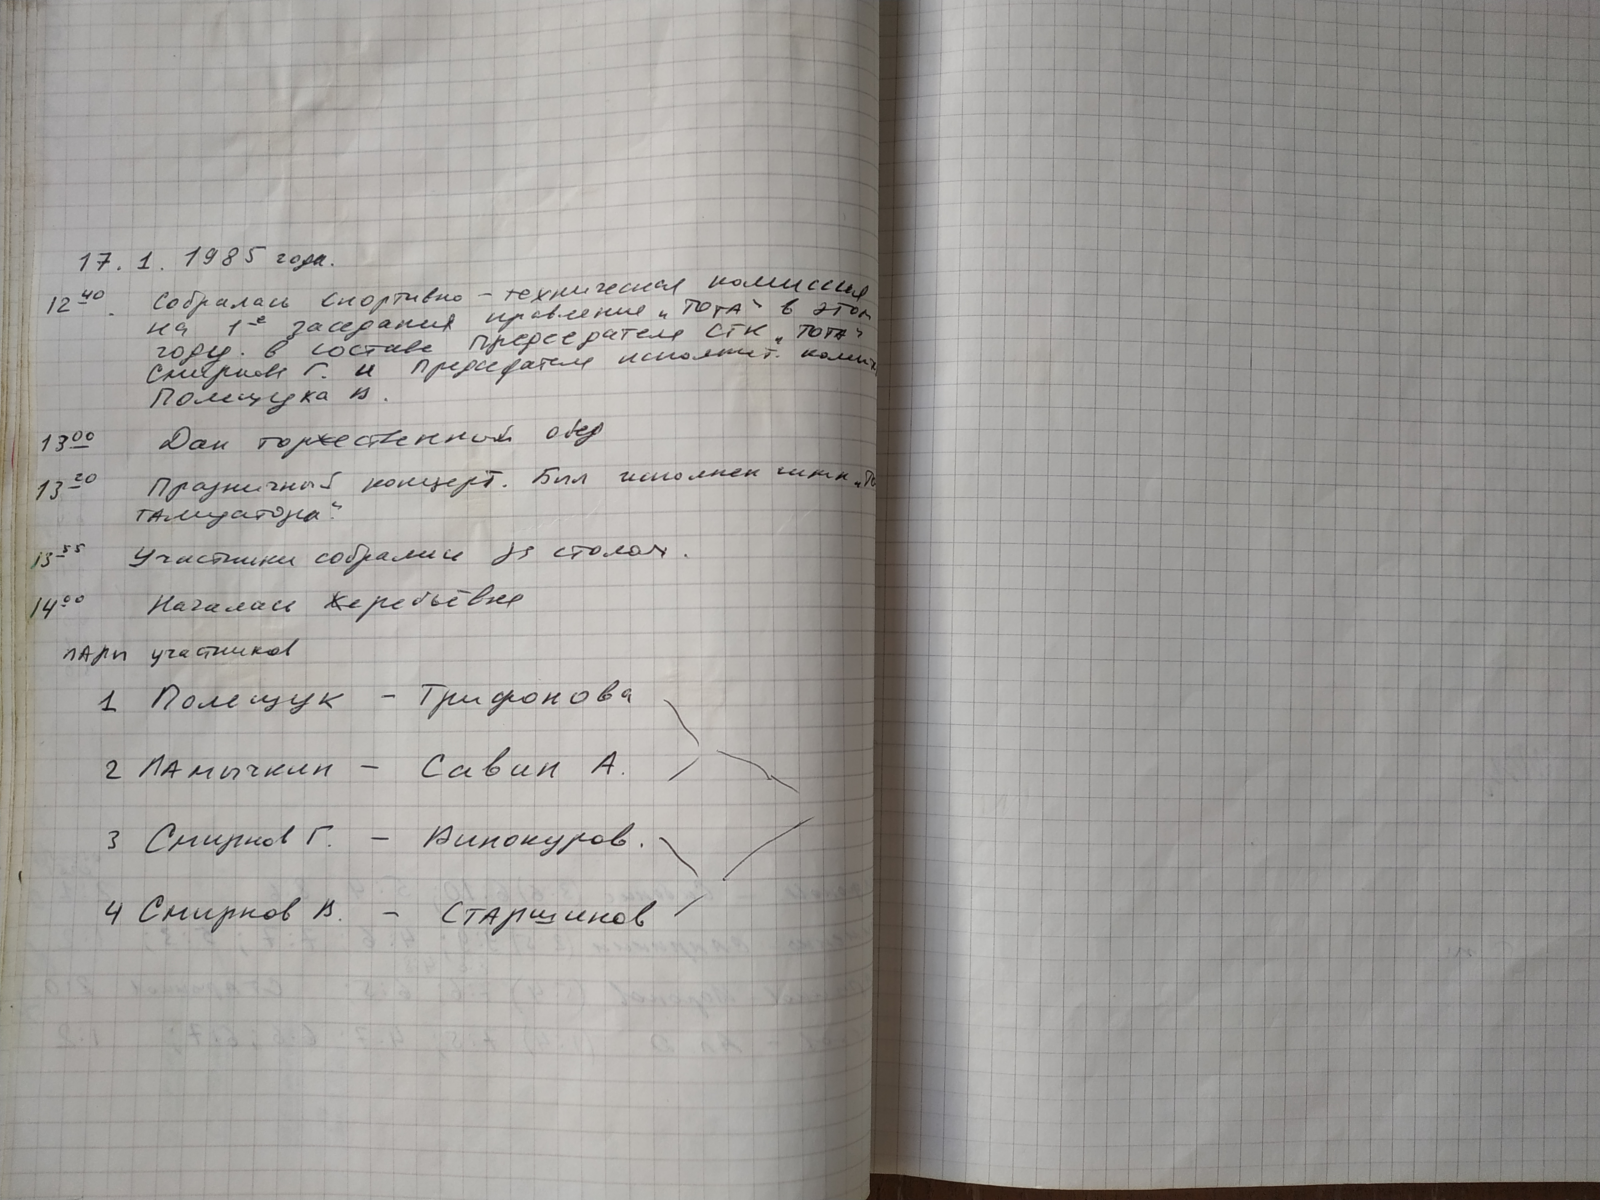 17. 1. 1985 года.
12 40. Собралась спортивно-техническая комиссия
на 1е заседания правление „ТОТА“ в этом
году. в составе Председателя СТК „ТОТА“
Смирнов Г. и Председателя исполнит. комит
Полещука В.
13 00 Дан торжественный обед
13 20 Праздничный концерт. Был исполнен гимн „То
тализатора“.
13 55 Участники собрались за столом.
14 00 Началась жеребьёвка
пары участников
1 Полещук - Трифонова
2 Лямычкин - Савин А.
3 Смирнов Г. - Винокуров.
4 Смирнов В. - Старшинов